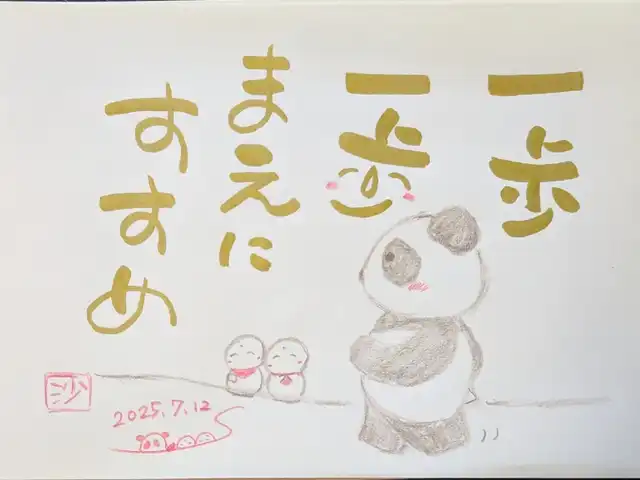 一歩
一歩
まえに
すすめ
2025.7.12
沙